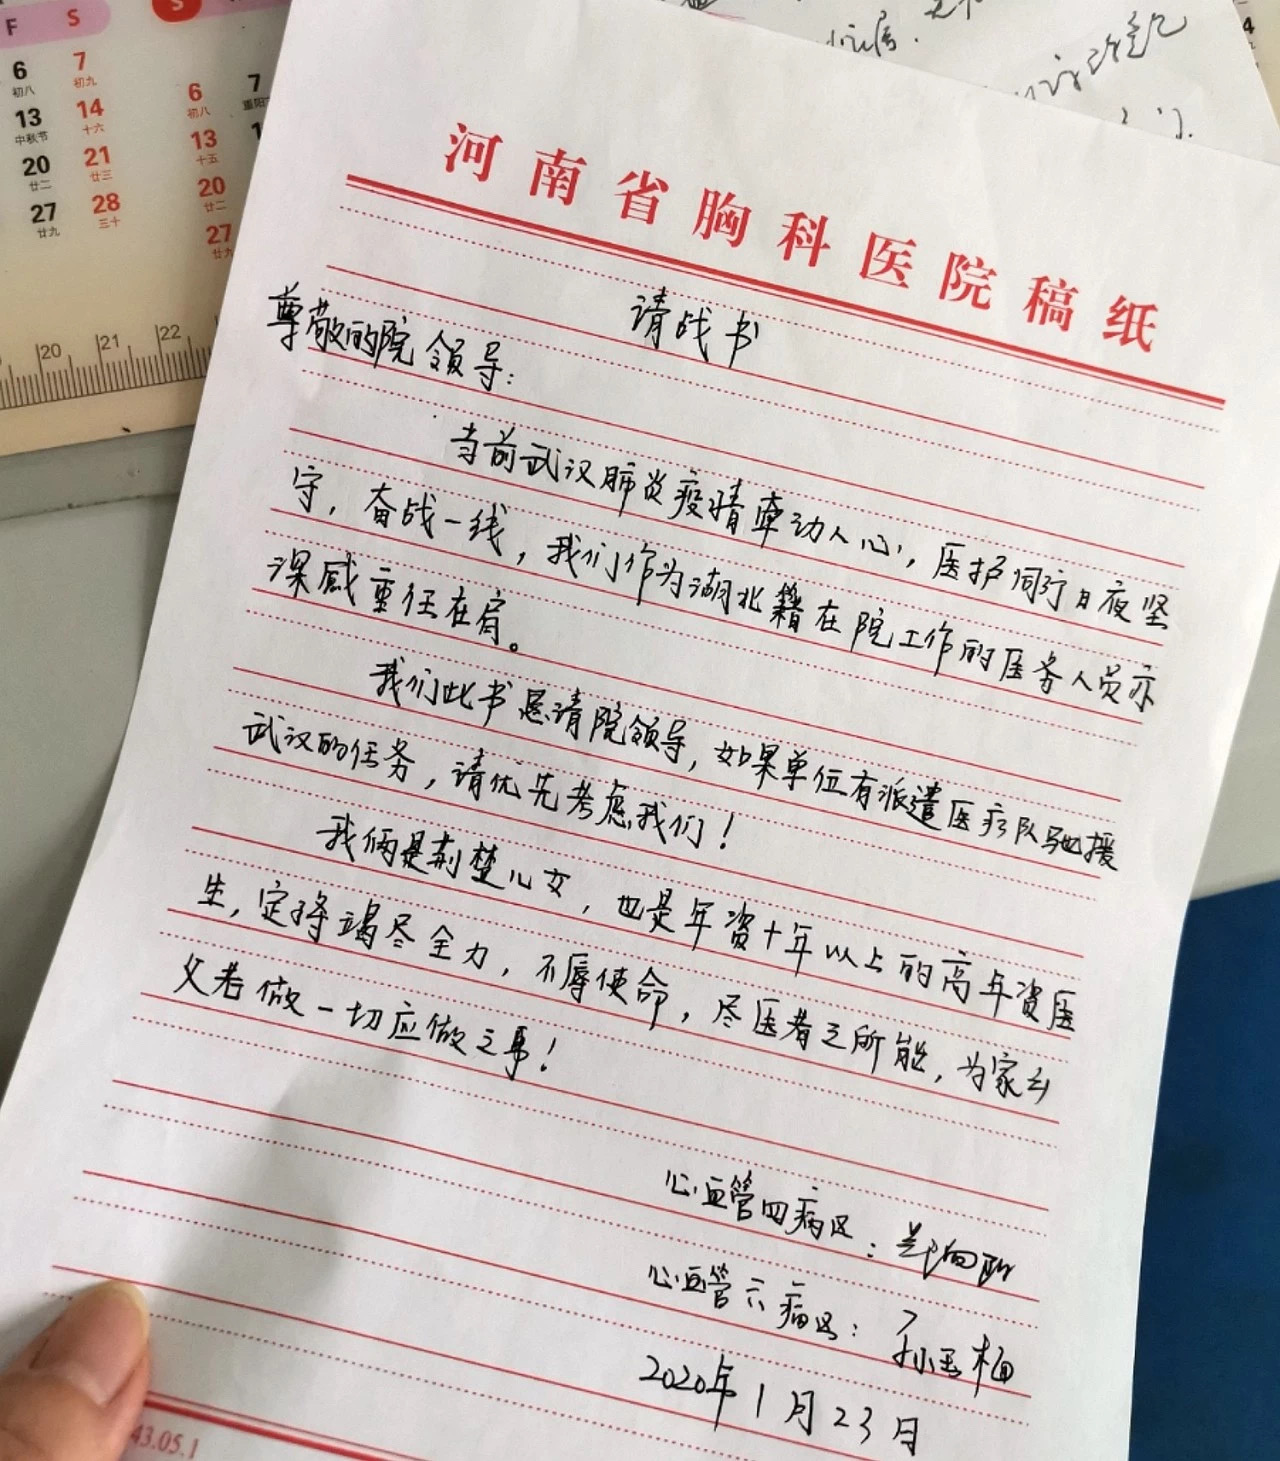 F S S
6 7 6 7
初八 初九 初八
13 14 13
中秋节 十六 十五
20 21 20
廿二 廿三 廿二
27 28 27
廿九 三十 廿九
20 21 22
河南省胸科医院稿纸
请战书
尊敬的院领导：
当前武汉肺炎疫情牵动人心，医护同行日夜坚
守，奋战一线，我们作为湖北籍在院工作的医务人员亦
深感重任在肩。
我们此书恳请院领导，如果单位有派遣医疗队驰援
武汉的任务，请优先考虑我们！
我俩是荆楚儿女，也是年资十年以上的高年资医
生，定将竭尽全力，不辱使命，尽医者之所能，为家乡
父老做一切应做之事！
心血管四病区：
心血管六病区：孙玉梅
2020年1月23日
43.05.1